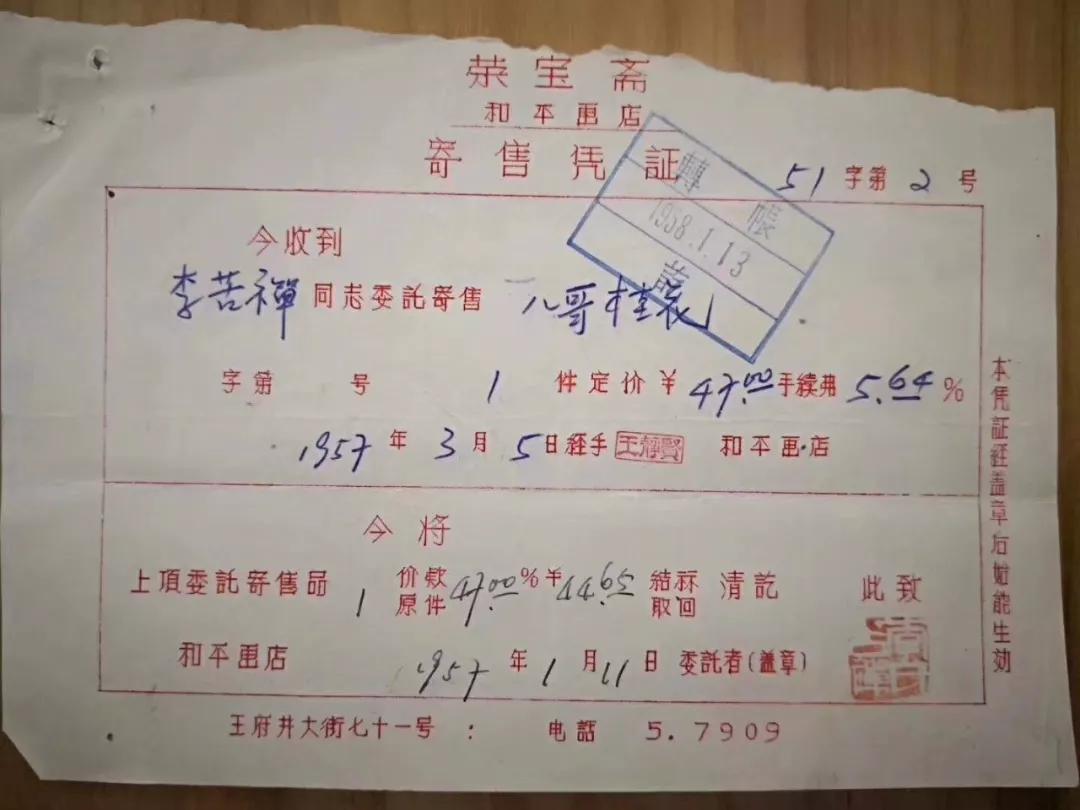 荣宝斋
和平画店
寄售凭証
51字第2号
轉帳
1958.1.13
訖
今收到
李苦禪同志委託寄售 八哥桂裱
字第 号 1 件定价¥47.00手續弗5.64%
1957年3月5日経手 王靜賢 和平画店
今将
上項委託寄售品 1 价欵原件 47.00%¥44.65 結袜取回 清訖 此致
和平画店 1957年1月11日 委託者(盖章)
王府井大街七十一号 : 电話 5.7909
本凭証経盖章后始能生効